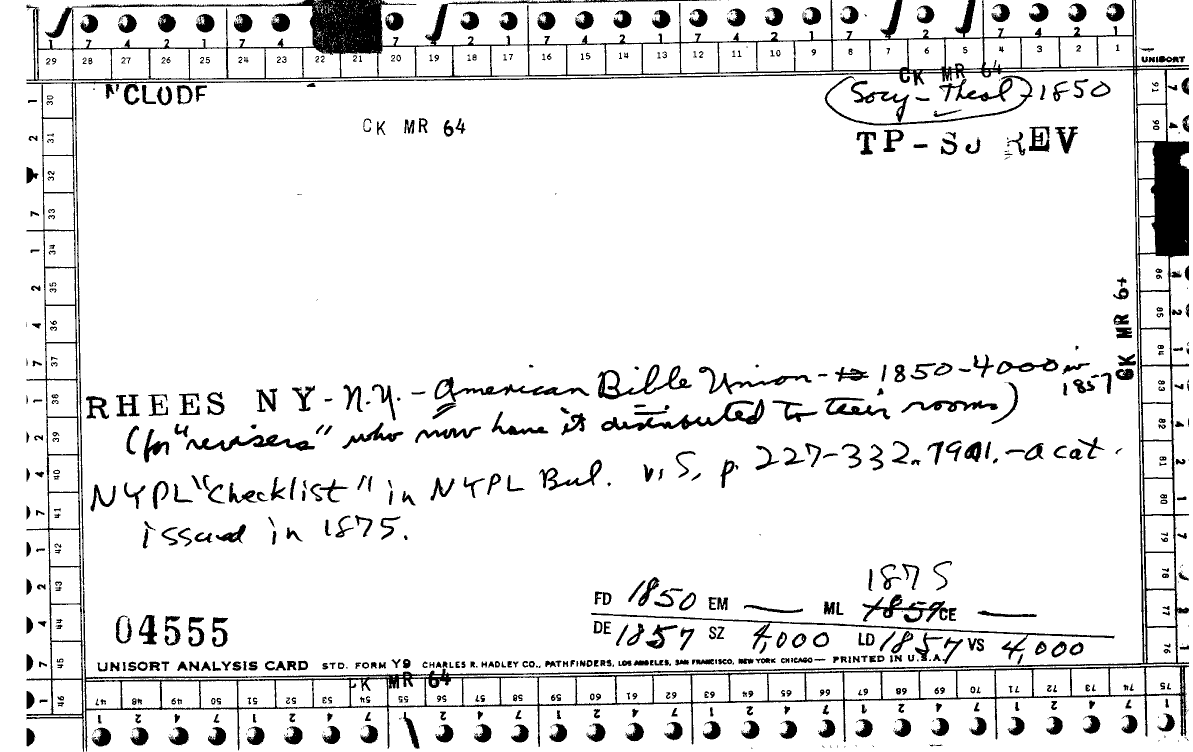 1 7 4 2 1 7 4 7 4 2 1 7 4 2 1 7 4 2 1 7 4 2 1 7 4 2 1
29 28 27 26 25 24 23 22 21 20 19 18 17 16 15 14 13 12 11 10 9 8 7 6 5 4 3 2 1
UNISORT
CK MR 64
NCLODF
Socy-Theol-1850
CK MR 64
TP-SU REV
CK MR 64
RHEES NY-N.Y.-American Bible Union-to 1850-4000 in 1857
(for "revisers" who now have it distributed to their rooms)
NYPL "Checklist" in NYPL Bul. v. 5, p. 227-332. 1901.-a cat.
issued in 1875.
1875
FD 1850 EM — ML 1857 CE —
04555
DE 1857 SZ 4,000 LD 1857 VS 4,000
UNISORT ANALYSIS CARD STD. FORM Y9 CHARLES R. HADLEY CO., PATHFINDERS, LOS ANGELES, SAN FRANCISCO, NEW YORK CHICAGO — PRINTED IN U.S.A.
CK MR 64
47 48 49 50 51 52 53 54 55 56 57 58 59 60 61 62 63 64 65 66 67 68 69 70 71 72 73 74 75